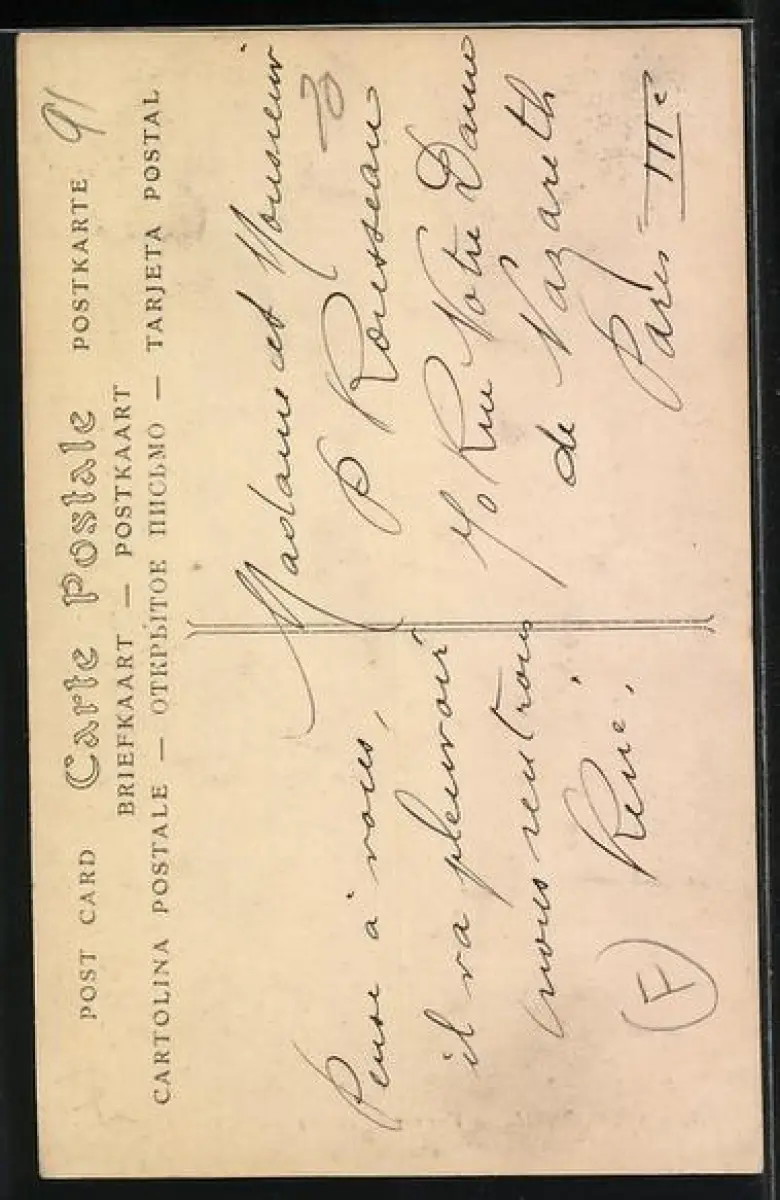 POST CARD Carte Postale POSTKARTE 91
BRIEFKAART — POSTKAART
CARTOLINA POSTALE — ОТКРЫТОЕ ПИСЬМО — TARJETA POSTAL
Pense à vous,
il va pleuvoir
nous rentrons
René.
(F)
Madame et Monsieur
P Rousseau
70 Rue Notre Dame
de Nazareth
Paris IIIe